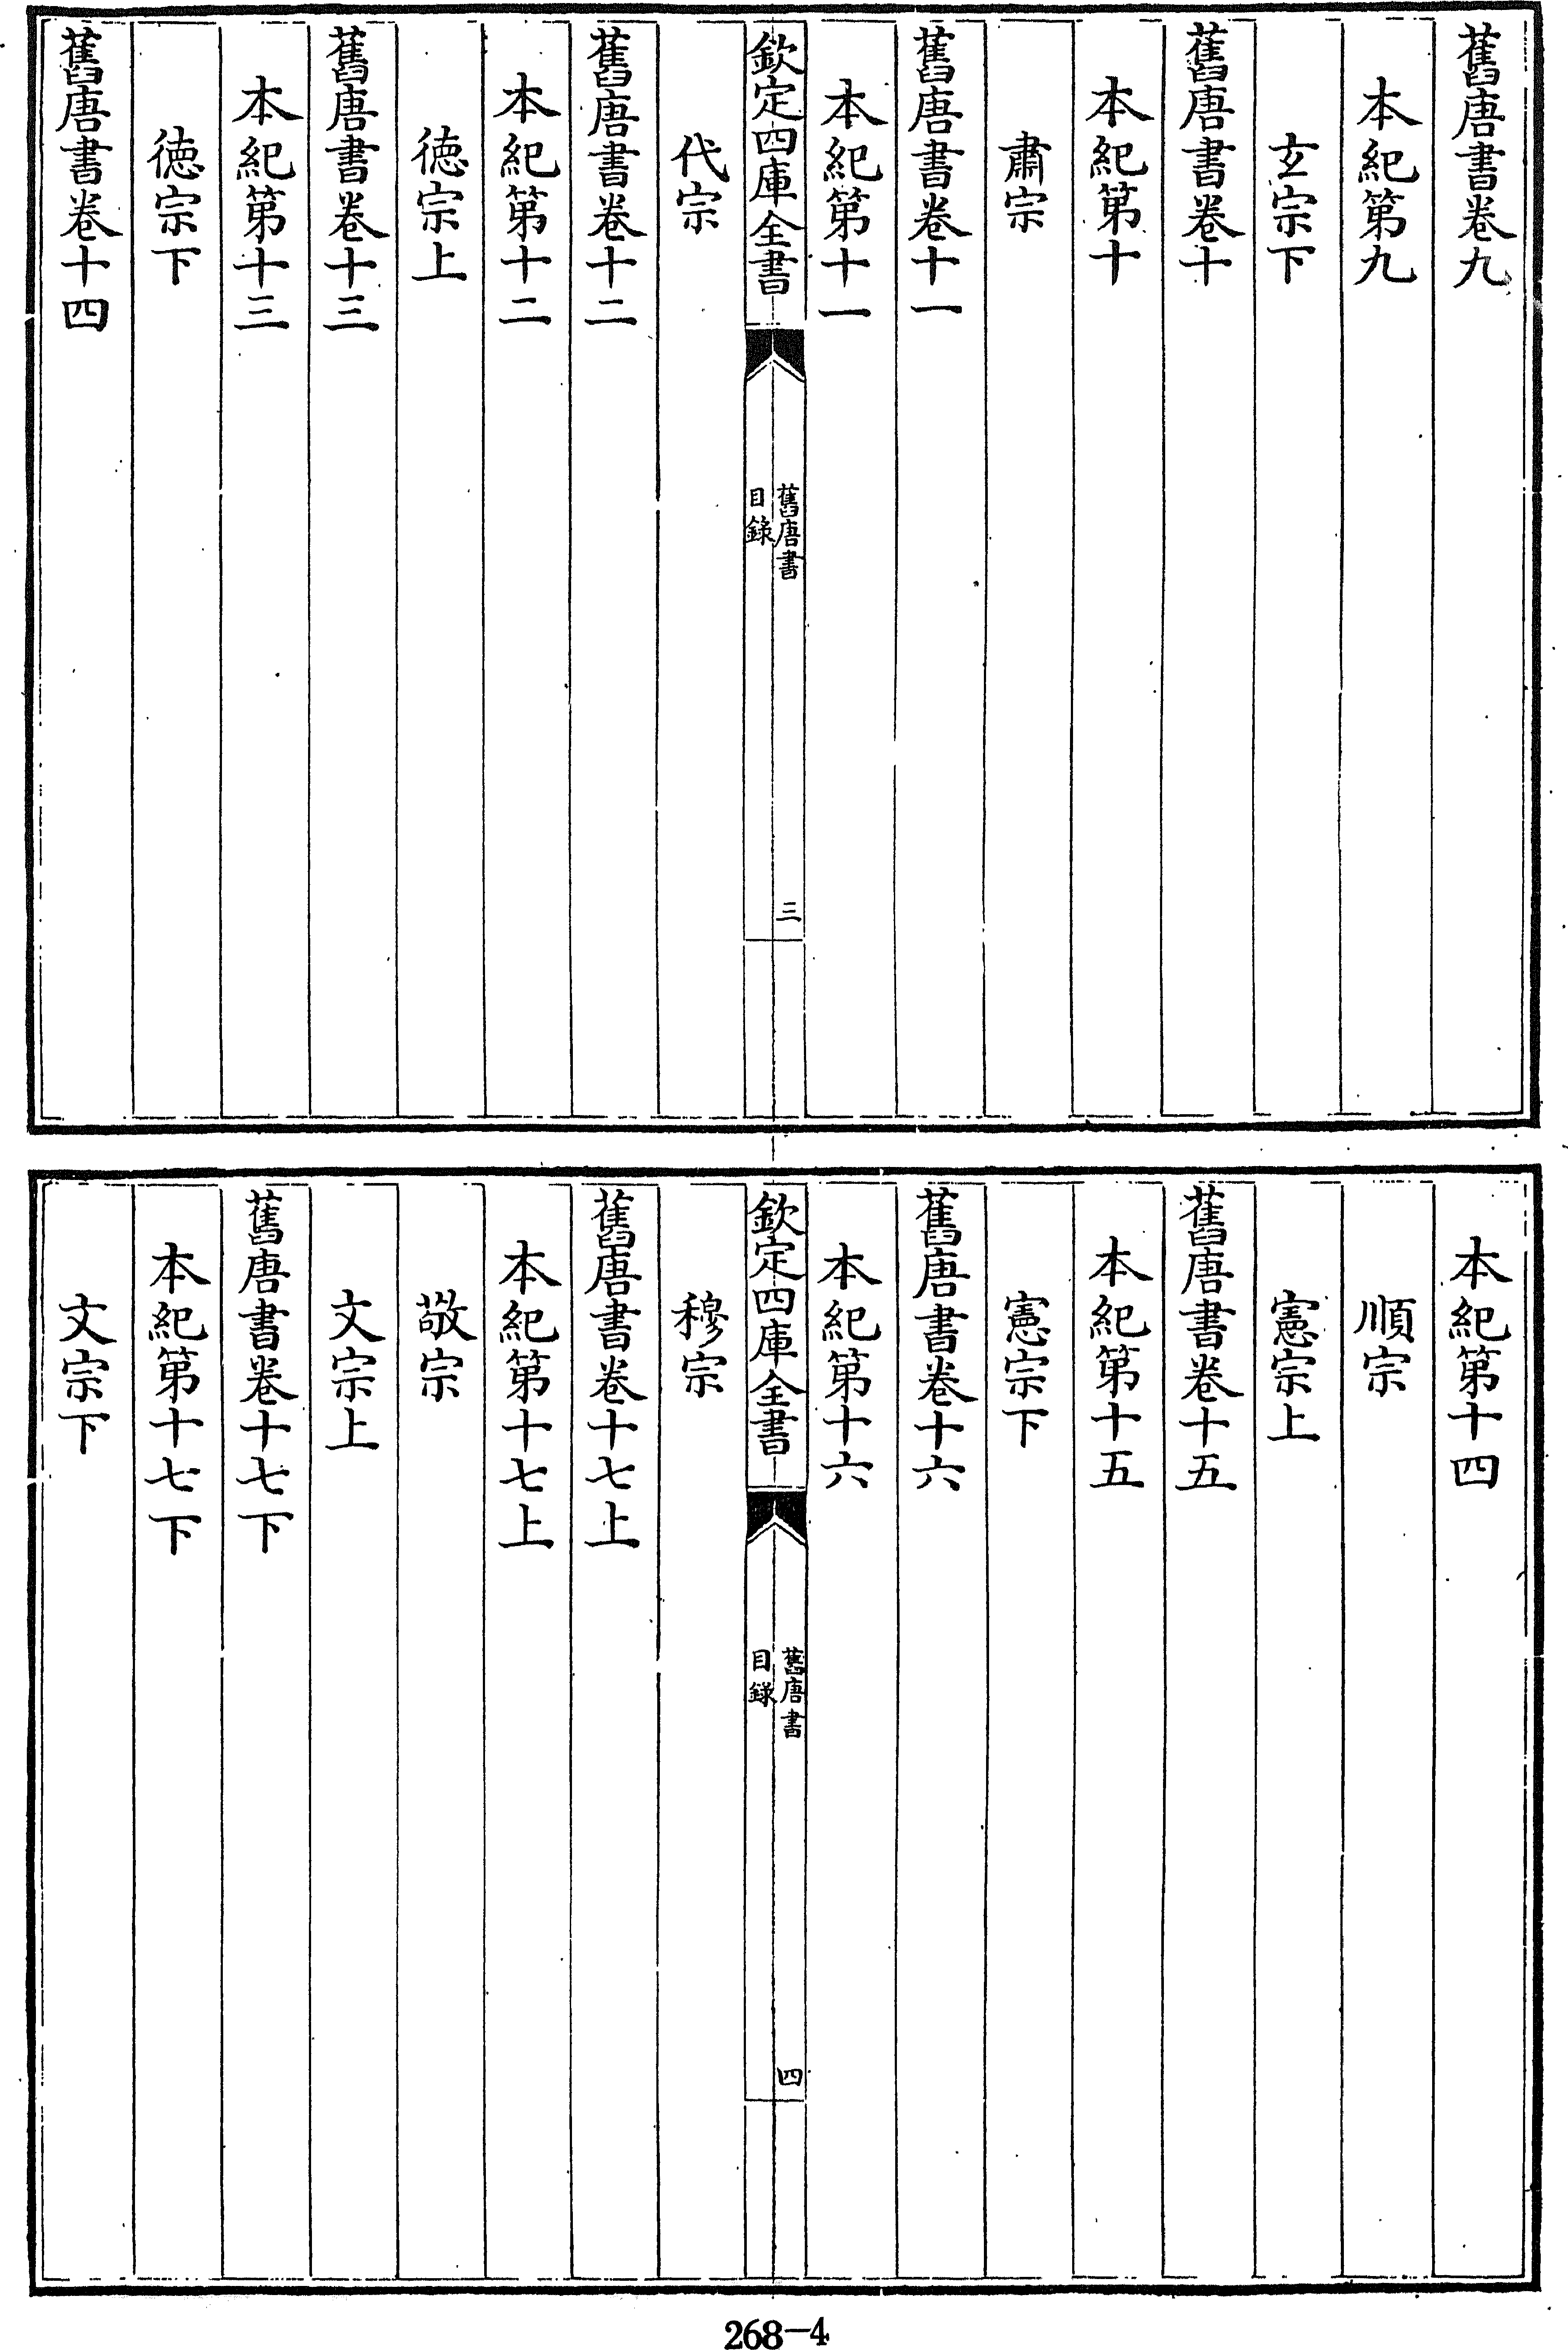 舊唐書卷九
本紀第九
玄宗下
舊唐書卷十
本紀第十
肅宗
舊唐書卷十一
本紀第十一
欽定四庫全書
舊唐書
目錄
三
代宗
舊唐書卷十二
本紀第十二
徳宗上
舊唐書卷十三
本紀第十三
徳宗下
舊唐書卷十四
本紀第十四
順宗
憲宗上
舊唐書卷十五
本紀第十五
憲宗下
舊唐書卷十六
本紀第十六
欽定四庫全書
舊唐書
目錄
四
穆宗
舊唐書卷十七上
本紀第十七上
敬宗
文宗上
舊唐書卷十七下
本紀第十七下
文宗下
268-4